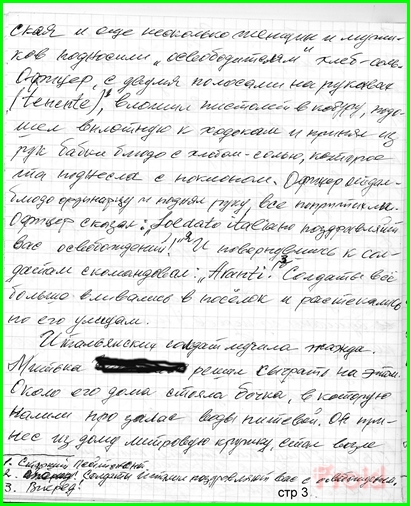 ская и еще несколько женщин и мужи-
ков подносили „освободителям" хлеб-соль.
Офицер, с двумя полосами на рукавах
(Tenente)¹, вложил пистолет в кобуру, подо-
шел вплотную к ходокам и принял из
рук бабки блюдо с хлебом-солью, которое
та поднесла с поклоном. Офицер отдал
блюдо ординарцу и поднял руку, все притихли.
Офицер сказал: „Soldato italiano поздравляйт
вас освобождений!"² И повернувшись к сол-
датам скомандовал: „Avanti!"³ Солдаты всё
больше вливались в посёлок и растекались
по его улицам.
Итальянских солдат мучила жажда.
решил сыграть на этом.
Около его дома стояла бочка, в которую
налили про запас воды питьевой. Он при-
нес из дому литровую кружку, стал возле
1. Старший лейтенант.
2. Солдаты Италии поздравляют вас с освобождением.
3. Вперед!
стр 3